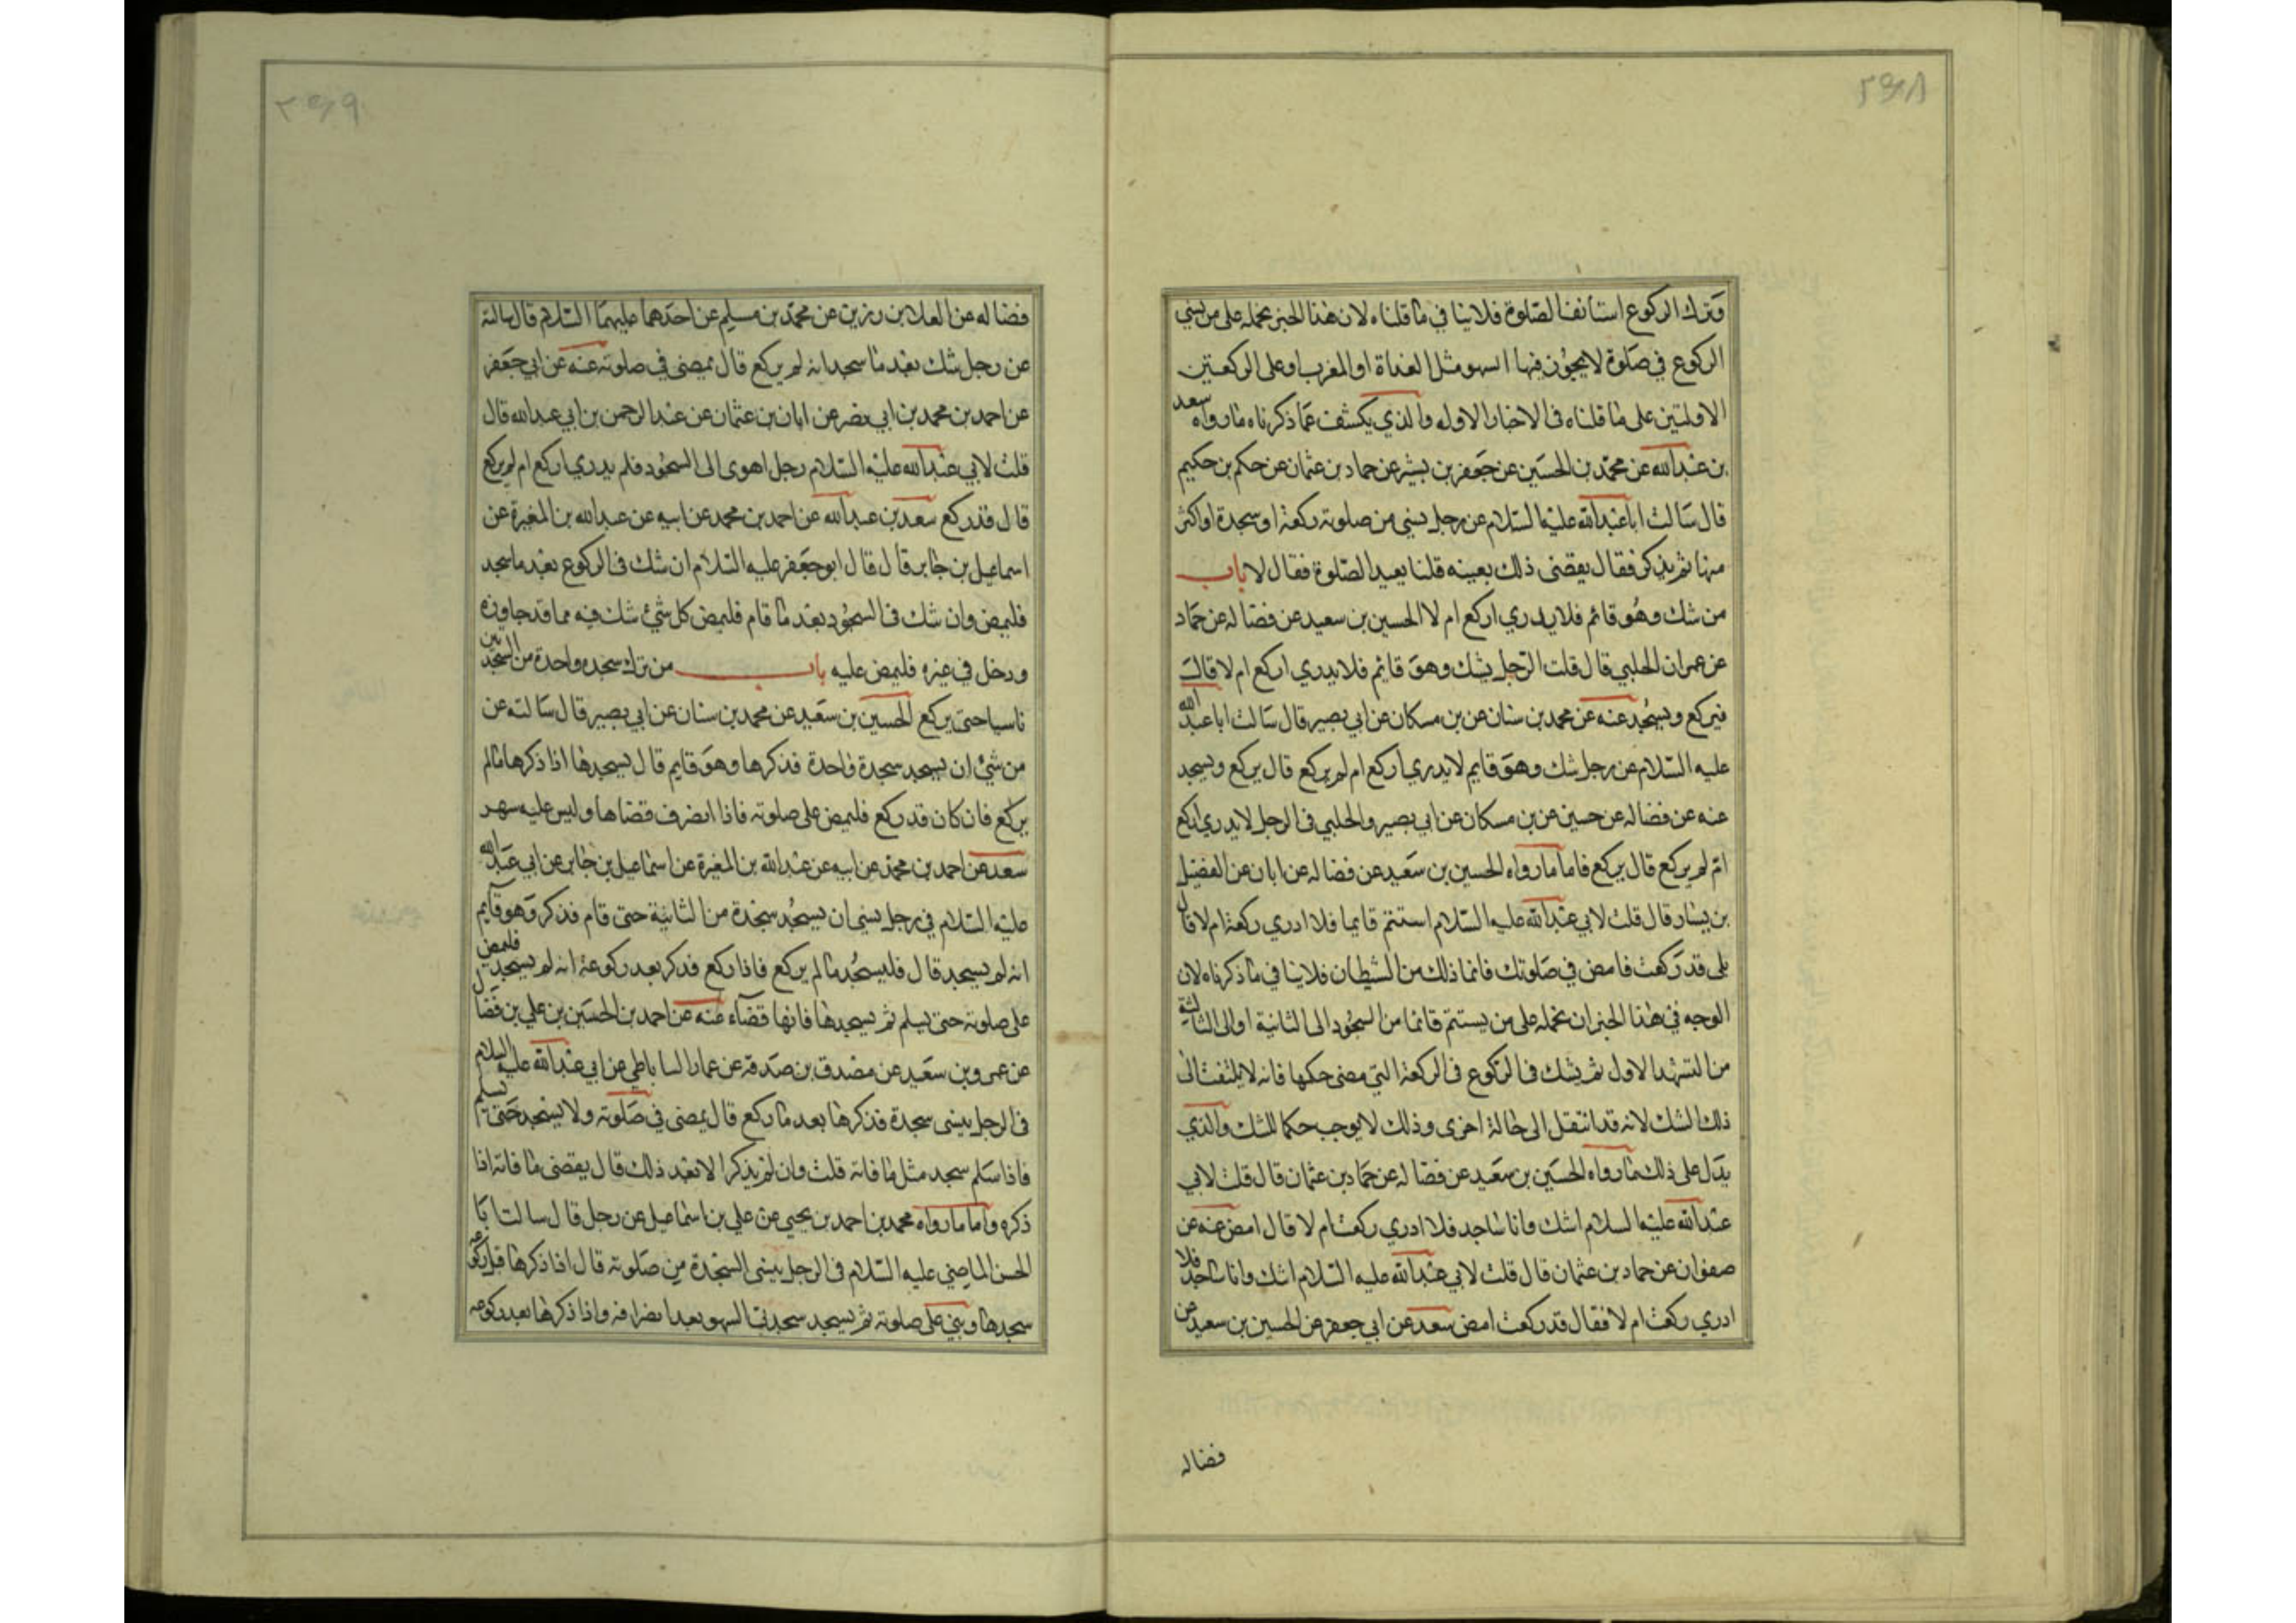 وترك الركوع استانف الصلوة فلا ينافي ما قلناه لان هذا الخبر نحمله على من نسي
الركوع في صلوة لا يجوز فيها السهو مثل الغداة او المغرب او على الركعتين
الاولتين على ما قلناه في الاخبار الاوله والذي يكشف عما ذكرناه ما رواه سعد
بن عبد الله عن محمد بن الحسين عن جعفر بن بشير عن حماد بن عثمان عن حكم بن حكيم
قال سالت ابا عبد الله عليه السلام عن رجل ينسي من صلوته ركعة او سجدة او اكثر
منها ثم يذكر فقال يقضى ذلك بعينه قلنا يعيد الصلوة فقال لا باب
من شك وهو قائم فلا يدري اركع ام لا الحسين بن سعيد عن فضاله عن حماد
عن عمران الحلبي قال قلت الرجل يشك وهو قايم فلا يدري اركع ام لا قال
فيركع ويسجد عنه عن محمد بن سنان عن بن مسكان عن ابي بصير قال سالت ابا عبد الله
عليه السلام عن رجل شك وهو قايم لا يدري اركع ام لم يركع قال يركع ويسجد
عنه عن فضاله عن حسين عن بن مسكان عن ابي بصير والحلبي في الرجل لا يدري اركع
ام لم يركع قال يركع فاما ما رواه الحسين بن سعيد عن فضاله عن ابان عن الفضيل
بن يسار قال قلت لابي عبد الله عليه السلام استتم قايما فلا ادري ركعت ام لا قال
بلى قد ركعت فامض في صلوتك فانما ذلك من الشيطان فلا ينافي ما ذكرناه لان
الوجه في هذا الخبر ان نحمله على من يستتم قائما من السجود الى الثانية او الى الثالثة
من التشهد الاول ثم يشك في الركوع في الركعة التي مضى حكمها فانه لا يلتفت الى
ذلك الشك لانه قد انتقل الى حالة اخرى وذلك لا يوجب حكما للشك والذي
يدل على ذلك ما رواه الحسين بن سعيد عن فضاله عن حماد بن عثمان قال قلت لابي
عبد الله عليه السلام اشك وانا ساجد فلا ادري ركعت ام لا قال امض عنه عن
صفوان عن حماد بن عثمان قال قلت لابي عبد الله عليه السلام اشك وانا ساجد فلا
ادري ركعت ام لا فقال قد ركعت امض سعد عن ابي جعفر عن الحسين بن سعيد عن
فضاله
فضاله عن العلا بن رزين عن محمد بن مسلم عن احدهما عليهما السلام قال سالته
عن رجل شك بعد ما سجد انه لم يركع قال يمضي في صلوته عنه عن ابي جعفر
عن احمد بن محمد بن ابي نصر عن ابان بن عثمان عن عبد الرحمن بن ابي عبد الله قال
قلت لابي عبد الله عليه السلام رجل اهوى الى السجود فلم يدري اركع ام لم يركع
قال قد ركع سعد بن عبد الله عن احمد بن محمد عن ابيه عن عبد الله بن المغيرة عن
اسماعيل بن جابر قال قال ابو جعفر عليه السلام ان شك في الركوع بعد ما سجد
فليمض وان شك في السجود بعد ما قام فليمض كل شيء شك فيه مما قد جاوزه
ودخل في غيره فليمض عليه باب من ترك سجده واحدة من السجدتين
ناسيا حتى يركع الحسين بن سعيد عن محمد بن سنان عن ابي بصير قال سالته عن
من شيء ان يسجد سجدة واحدة فذكرها وهو قايم قال يسجدها اذا ذكرها ما لم
يركع فان كان قد ركع فليمض على صلوته فاذا انصرف قضاها وليس عليه سهو
سعد عن احمد بن محمد عن ابيه عن عبد الله بن المغيرة عن اسماعيل بن جابر عن ابي عبد الله
عليه السلام في رجل نسي ان يسجد سجدة من الثانية حتى قام فذكر وهو قايم
انه لم يسجد قال فليسجد ما لم يركع فاذا ركع فذكر بعد ركوعه انه لم يسجد فليمض
على صلوته حتى يسلم ثم يسجدها فانها قضاء عنه عن احمد بن الحسين بن علي بن فضال
عن عمرو بن سعيد عن مصدق بن صدقة عن عمار الساباطي عن ابي عبد الله عليه السلام
في الرجل ينسى سجدة فذكرها بعد ما ركع قال يمضي في صلوته ولا يسجد حتى يسلم
فاذا سلم سجد مثل ما فاته قلت وان لم يذكر الا بعد ذلك قال يقضى ما فاته اذا
ذكره واما ما رواه محمد بن احمد بن يحيى عن علي بن اسماعيل عن رجل قال سالت ابا
الحسن الماضي عليه السلام في الرجل ينسى السجدة من صلوته قال اذا ذكرها قبل ركوعه
سجدها وبنى على صلوته ثم يسجد سجدتي السهو بعد انصرافه واذا ذكرها بعد ركوعه